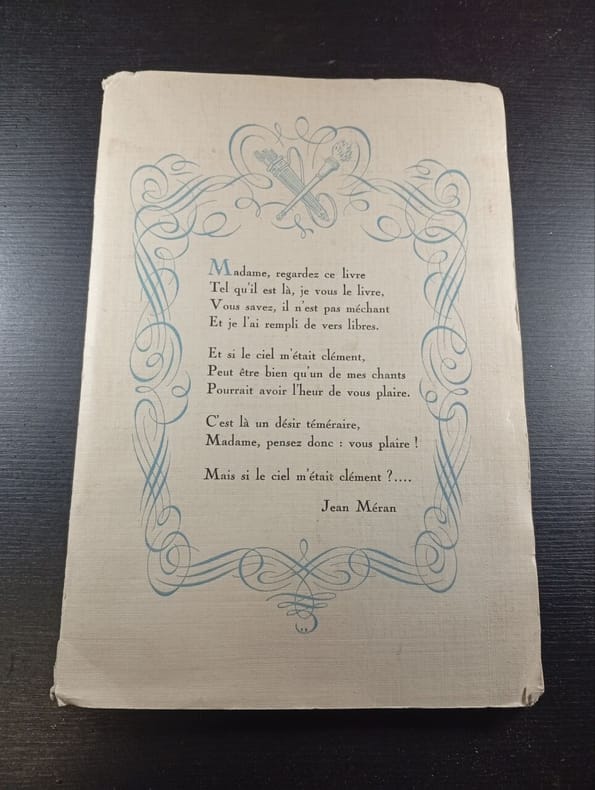 Madame, regardez ce livre
Tel qu'il est là, je vous le livre,
Vous savez, il n'est pas méchant
Et je l'ai rempli de vers libres.
Et si le ciel m'était clément,
Peut être bien qu'un de mes chants
Pourrait avoir l'heur de vous plaire.
C'est là un désir téméraire,
Madame, pensez donc : vous plaire !
Mais si le ciel m'était clément ?....
Jean Méran